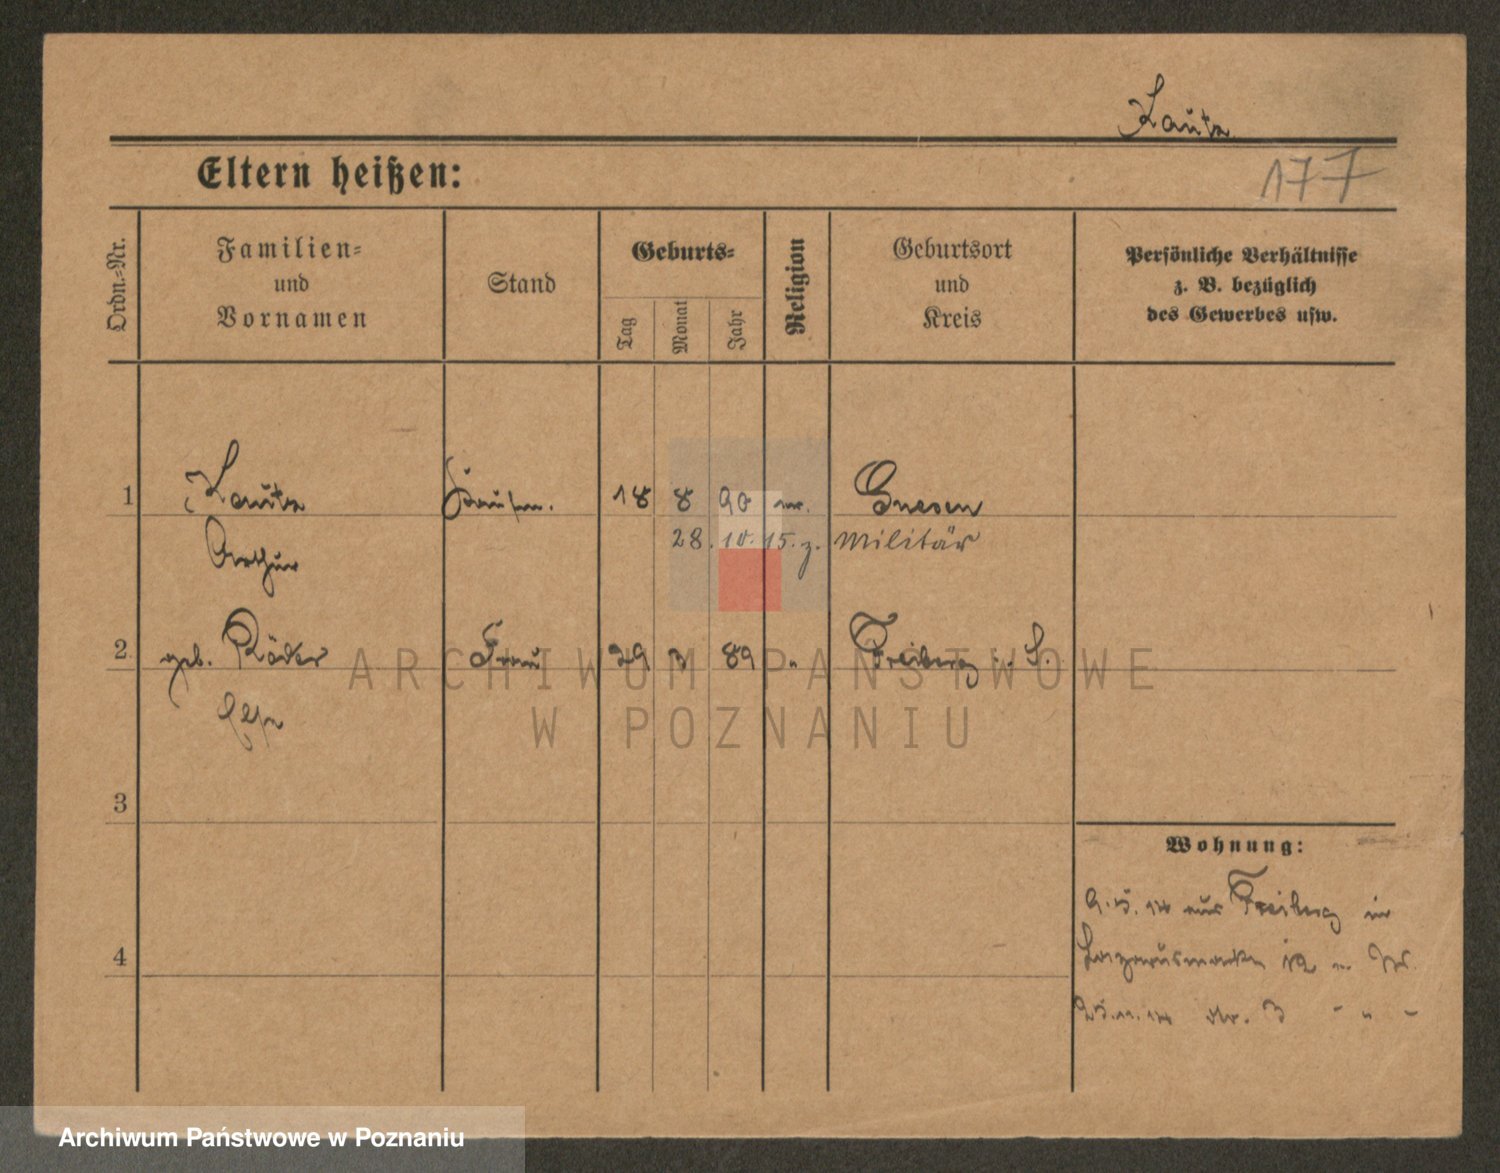 Kautz
177
Eltern heißen:
Ordn.-Nr.
Familien-
und
Vornamen
Stand
Geburts-
Tag
Monat
Jahr
Religion
Geburtsort
und
Kreis
Persönliche Verhältnisse
z. B. bezüglich
des Gewerbes usw.
1 Kautz Kaufm. 18 8 90 Gnesen
Arthur 28.10.15. z. Militär
2 geb. Röder Frau 29 3 89 " Freiberg i. S.
Else
ARCHIWUM PAŃSTWOWE
W POZNANIU
3
Wohnung:
9.5.14 aus Freiberg in
4
12
25.11.14 3 " " "
Archiwum Państwowe w Poznaniu